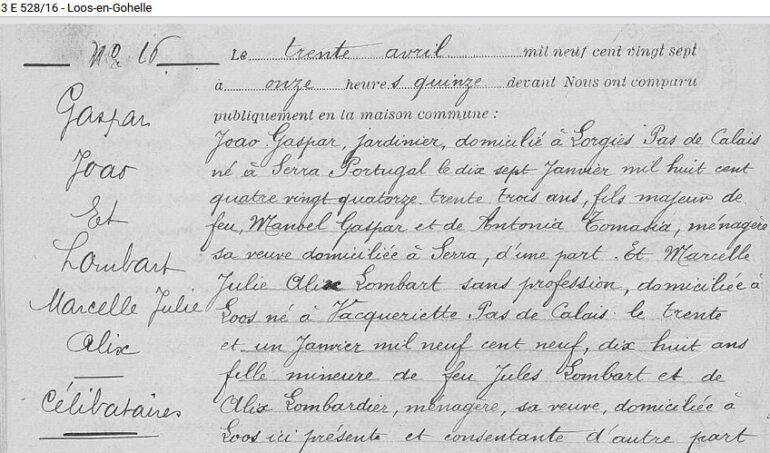 3 E 528/16 - Loos-en-Gohelle
No 16
Gaspar
Joao
Et
Lombart
Marcelle Julie
Alix
Célibataires
Le trente avril mil neuf cent vingt sept
à onze heures quinze devant Nous ont comparu
publiquement en la maison commune :
Joao Gaspar, jardinier, domicilié à Lorgies Pas de Calais
né à Serra Portugal le dix sept Janvier mil huit cent
quatre vingt quatorze trente trois ans, fils majeur de
feu, Manoel Gaspar et de Antonia Tomasia, ménagère
sa veuve domiciliée à Serra, d'une part. Et Marcelle
Julie Alix Lombart sans profession, domiciliée à
Loos né à Vacqueriette Pas de Calais le trente
et un Janvier mil neuf cent neuf, dix huit ans
fille mineure de feu Jules Lombart et de
Alix Lombardier, ménagère, sa veuve, domiciliée à
Loos ici présente et consentante d'autre part